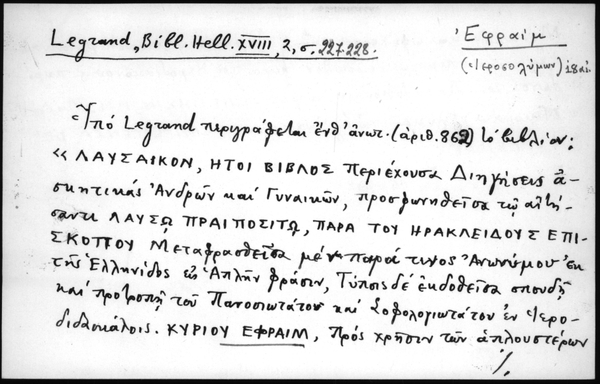 Legrand, Bibl. Hell. XVIII, 2, σ. 227-228.
Ἐφραὶμ
(Ἱεροσολύμων) 18 αἰ.
Ὑπὸ Legrand περιγράφεται ἔνθ' ἀνωτ. (ἀριθ. 862) τὸ βιβλίον:
«ΛΑΥΣΑΪΚΟΝ, ΗΤΟΙ ΒΙΒΛΟΣ Περιέχουσα Διηγήσεις ἀ-
σκητικάς Ἀνδρῶν καὶ Γυναικῶν, προσφωνηθεῖσα τῷ αἰτή-
σαντι ΛΑΥΣῼ ΠΡΑΙΠΟΣΙΤῼ, ΠΑΡΑ ΤΟΥ ΗΡΑΚΛΕΙΔΟΥΣ ΕΠΙ-
ΣΚΟΠΟΥ Μεταφρασθεῖσα μὲν παρά τινος Ἀνωνύμου ἐκ
τῆς Ἑλληνίδος εἰς Ἁπλῆν φράσιν, Τύποις δὲ ἐκδοθεῖσα σπουδῇ
καὶ προτροπῇ τοῦ Πανοσιωτάτου καὶ Σοφολογιωτάτου ἐν Ἱερο-
διδασκάλοις. ΚΥΡΙΟΥ ΕΦΡΑΙΜ, Πρὸς χρῆσιν τῶν ἁπλουστέρων
./.